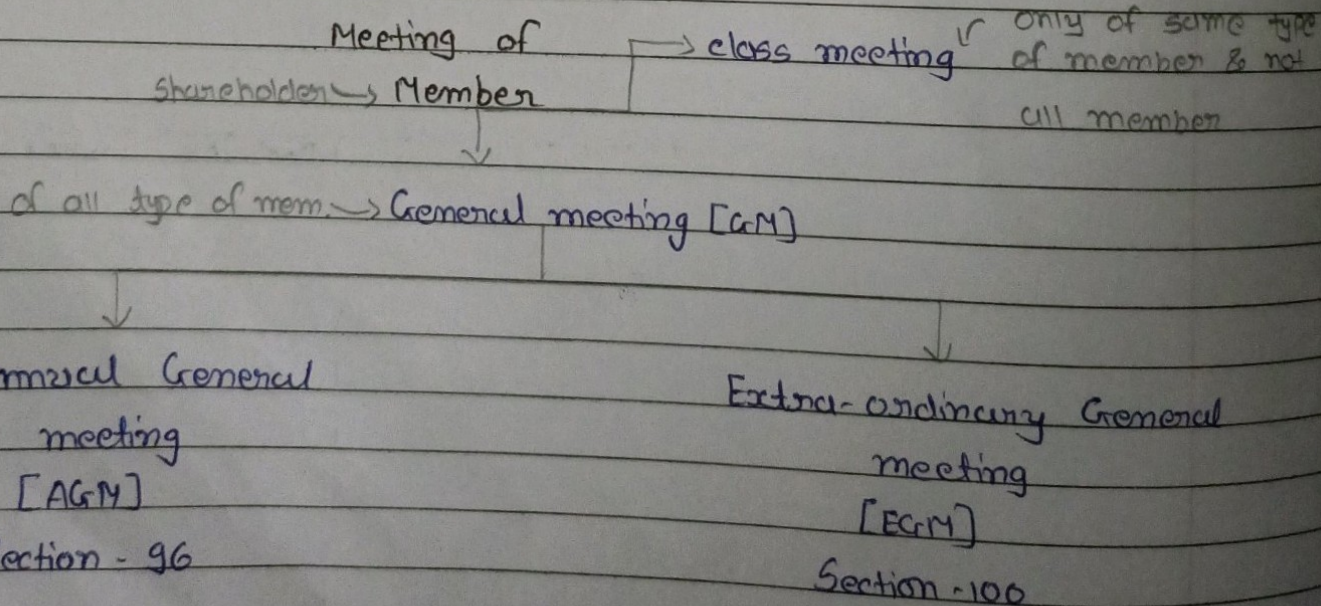 Meeting of
Shareholder → Member
→ class meeting
only of same type
of member & not
all member
of all type of mem. → General meeting [GM]
nnual General
meeting
[AGM]
ection - 96
Extra-ordinary General
meeting
[EGM]
Section - 100